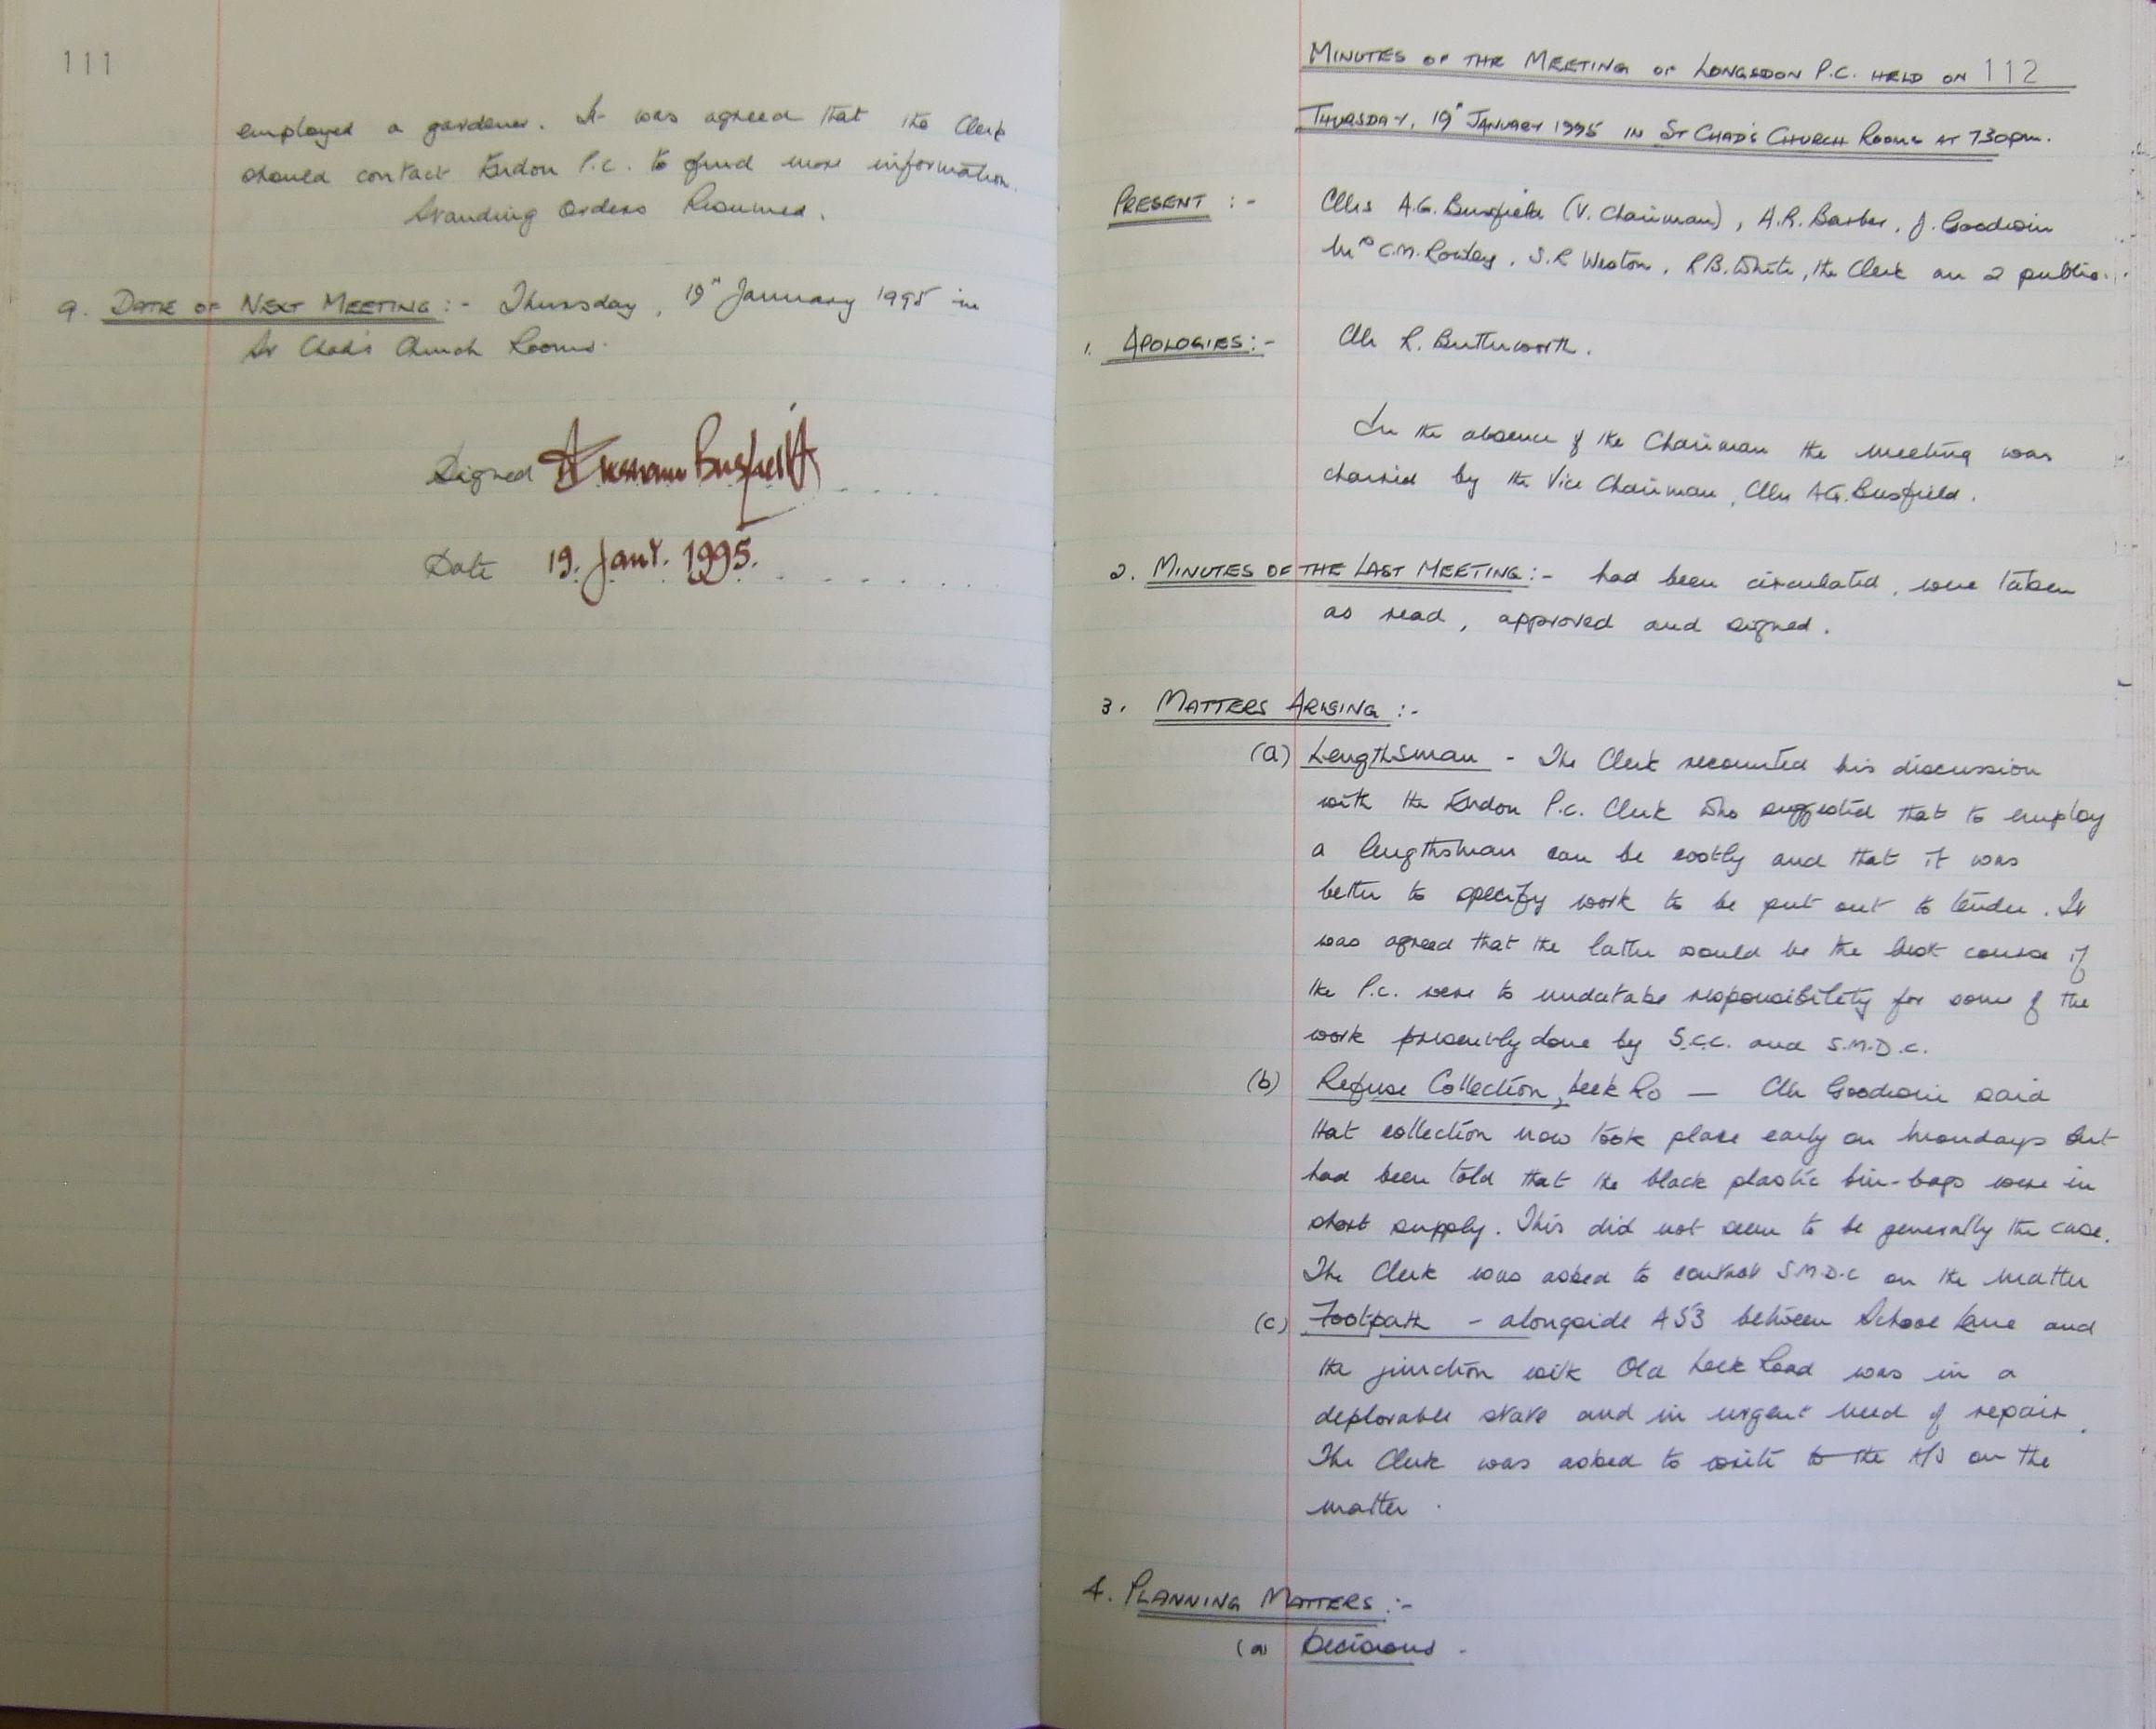 111
employed a gardener. It was agreed that the Clerk
should contact Endon P.C. to find more information.
Standing Orders Resumed.
9. DATE OF NEXT MEETING :- Thursday, 19th January 1995 in
St Chad's Church Rooms.
Signed Busfield
Date 19. Jany. 1995.
MINUTES OF THE MEETING OF LONGSDON P.C. HELD ON 112
THURSDAY, 19th JANUARY 1995 IN ST CHAD'S CHURCH ROOMS AT 7.30pm.
PRESENT :- Cllrs A.G. Busfield (V. Chairman), A.R. Barber, J. Goodwin
Mrs C.M. Rowley, S.R Weston, R.B. White, the Clerk an 2 public.
1. APOLOGIES :- Cllr R. Butterworth.
In the absence of the Chairman the meeting was
chaired by the Vice Chairman, Cllr A.G. Busfield.
2. MINUTES OF THE LAST MEETING :- had been circulated, were taken
as read, approved and signed.
3. MATTERS ARISING :-
(a) Lengthsman - The Clerk recounted his discussion
with the Endon P.C. Clerk who suggested that to employ
a lengthsman can be costly and that it was
better to specify work to be put out to tender. It
was agreed that the latter would be the best course if
the P.C. were to undertake responsibility for some of the
work presently done by S.C.C. and S.M.D.C.
(b) Refuse Collection, Leek Rd — Cllr Goodwin said
that collection now took place early on Mondays but
had been told that the black plastic bin-bags were in
short supply. This did not seem to be generally the case.
The Clerk was asked to contact S.M.D.C on the matter
(c) Footpath - alongside A53 between School Lane and
the junction with Old Leek Road was in a
deplorable state and in urgent need of repair.
The Clerk was asked to write to the H/S on the
matter.
4. PLANNING MATTERS :-
(a) Decisions -